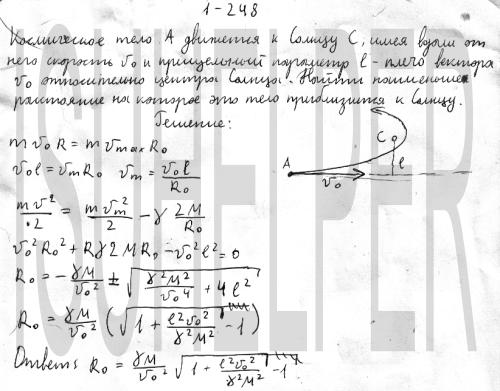 1-248
Космическое тело А движется к Солнцу С, имея вдали от
него скорость v₀ и прицельный параметр l - плечо вектора
v₀ относительно центра Солнца. Найти наименьшее
расстояние на которое это тело приблизится к Солнцу.
Решение:
m v₀ R = m v_max R₀
v₀ l = v_m R₀   v_m = v₀ l / R₀
m v² / 2 = m v_m² / 2 - γ 2M / R₀
v₀² R₀² + Rγ2MR₀ - v₀² l² = 0
R₀ = - γM / v₀² ± √(γ²M² / v₀⁴ + 4l²)
R₀ = γM / v₀² (√(1 + l² v₀² / γ²M² - 1))
Ответ: R₀ = γM / v₀² √(1 + l² v₀² / γ²M²) - 1
A
v₀
C
l
ISUHELPER